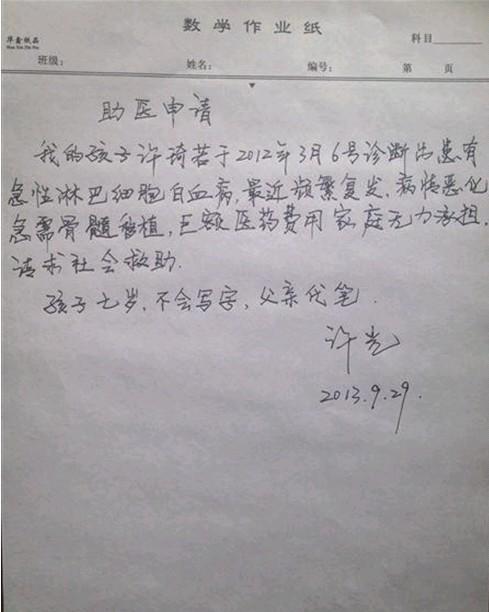 数学作业纸
华鑫纸品
Hua Xin Zhi Pin
科目
班级： 姓名： 编号： 第 页
助医申请
我的孩子许琦若于2012年3月6号诊断出患有
急性淋巴细胞白血病，最近频繁复发，病情恶化
急需骨髓移植，巨额医药费用家庭无力承担，
请求社会救助.
孩子七岁，不会写字，父亲代笔.
许光
2013.9.29.